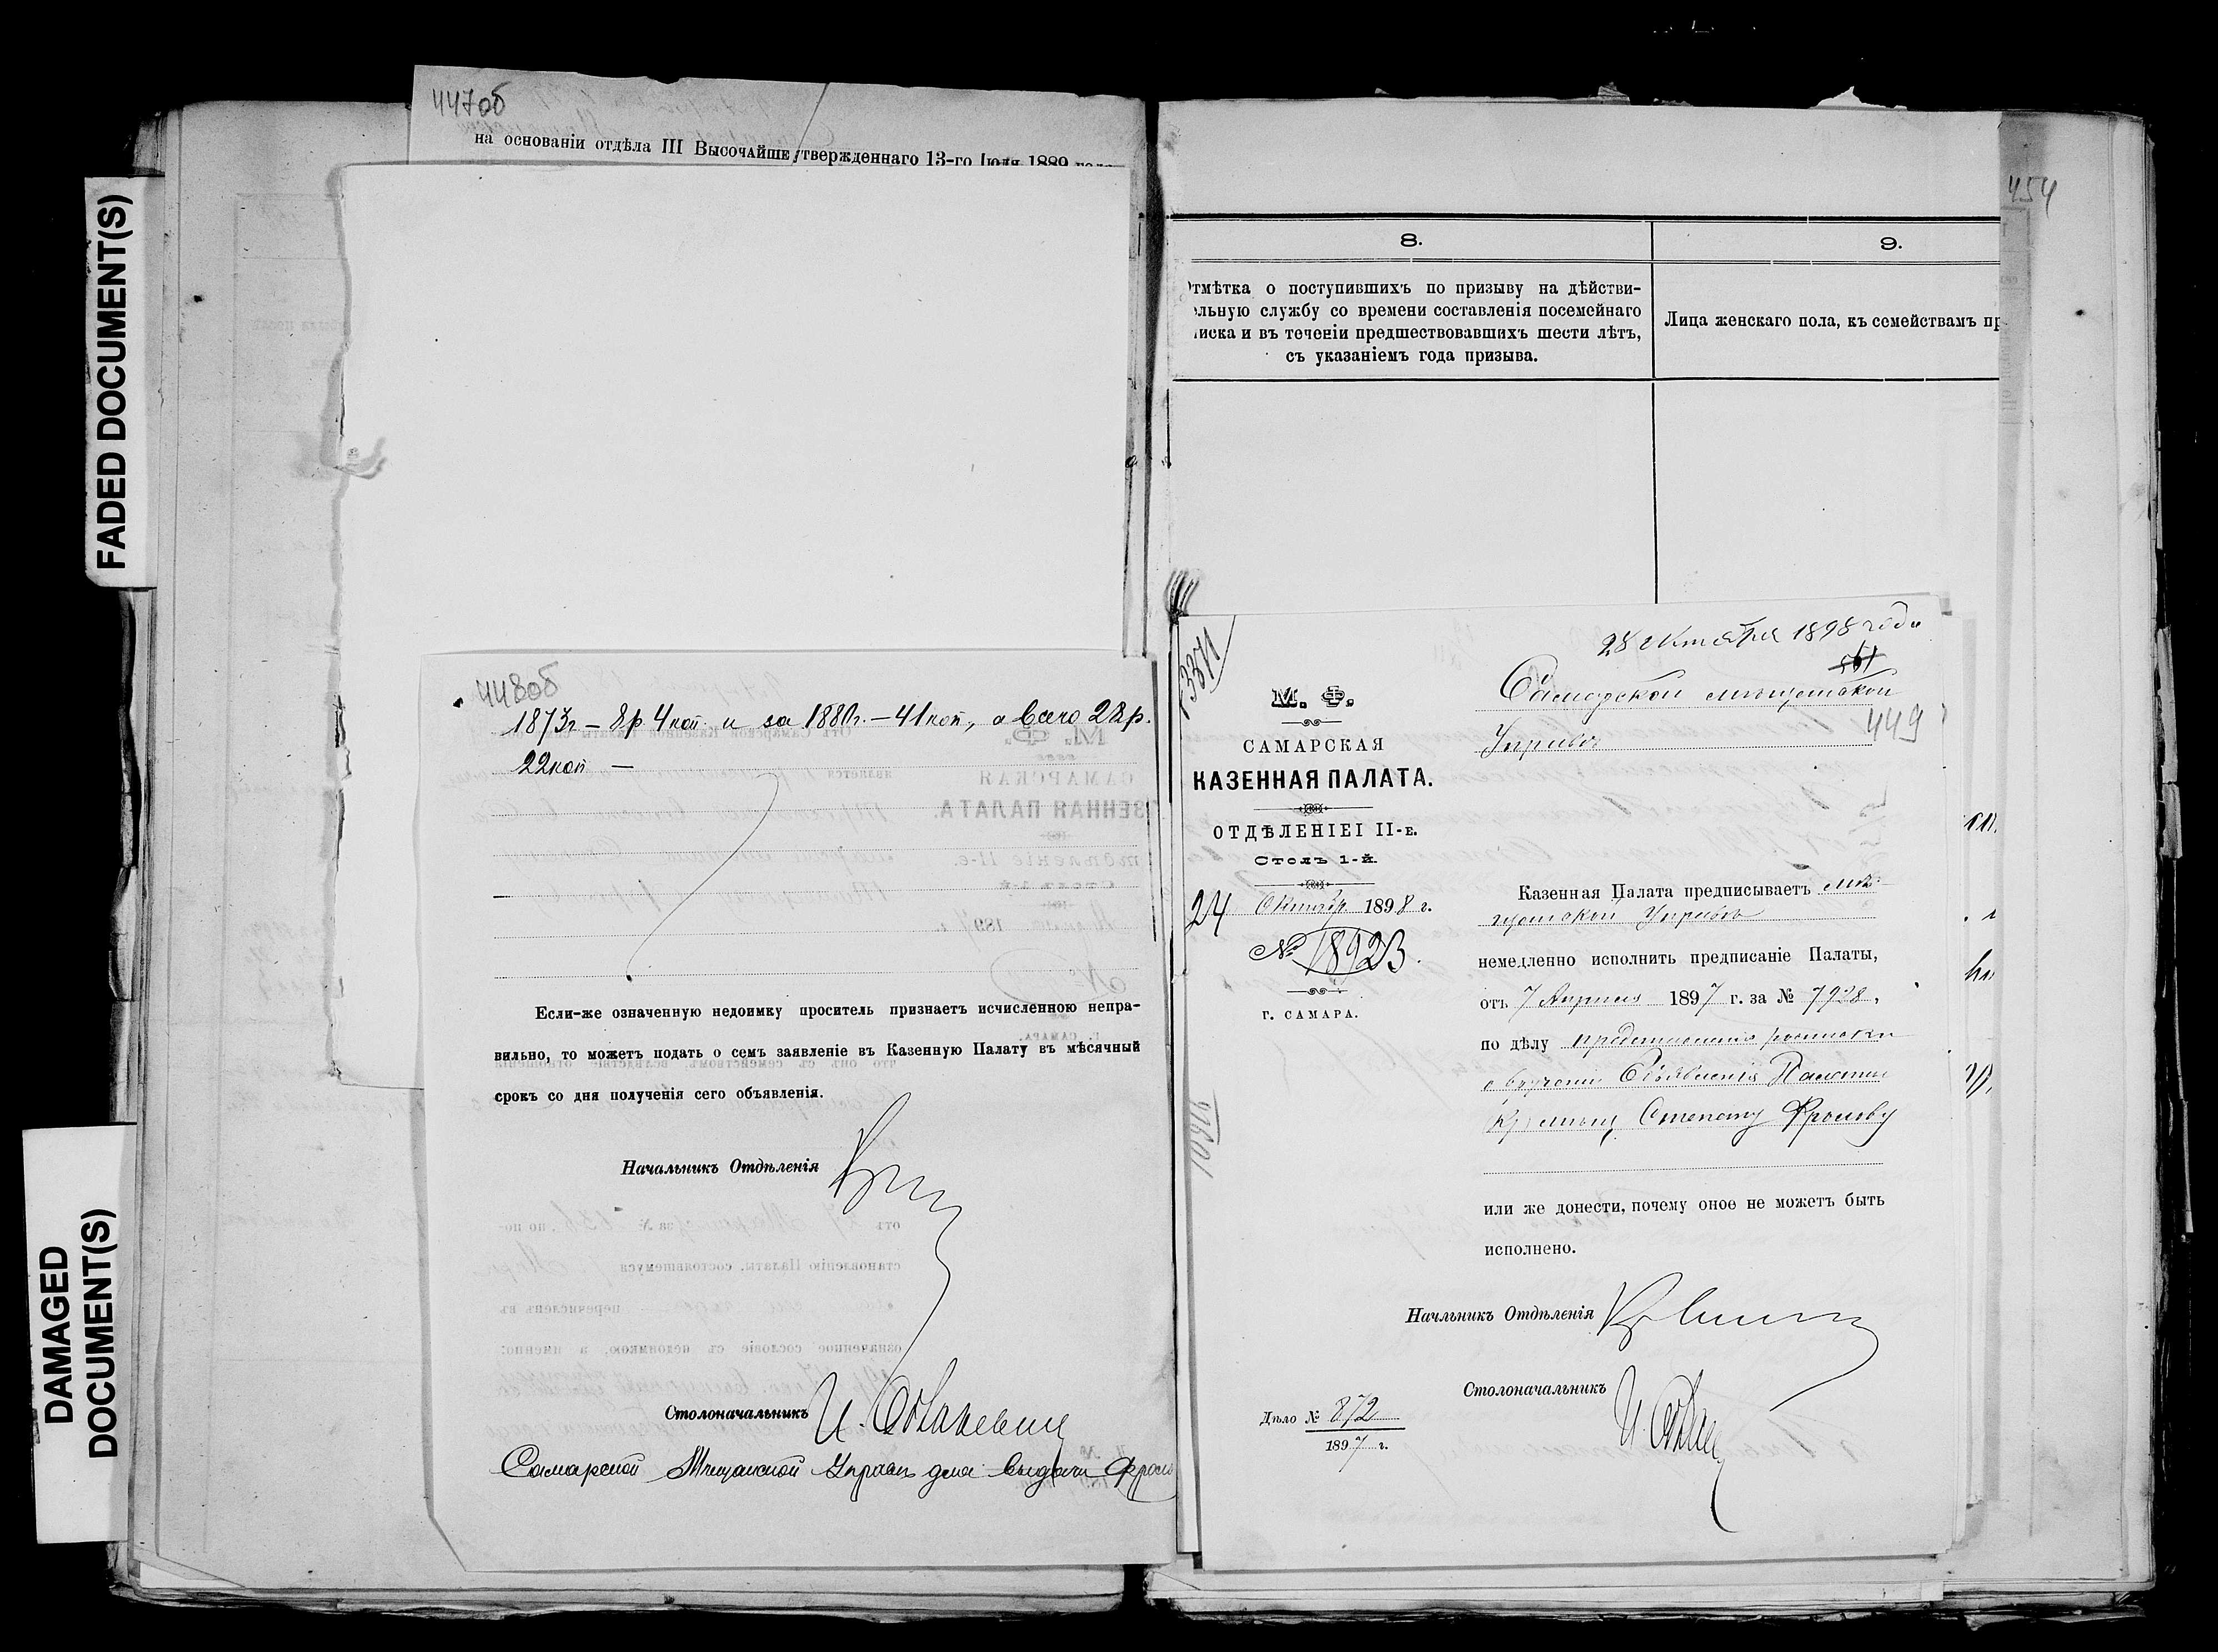 FADED DOCUMENT(S)
DAMAGED
DOCUMENT(S)
447об
на основаніи отдѣла III Высочайше утвержденнаго 13-го Іюля 1889 года
448об
1873г. – 8р. 4коп. и за 1880г. – 41коп., а всего 28р.
22коп –
Если-же означенную недоимку проситель признаетъ исчисленною непра-
вильно, то можетъ подать о семъ заявленіе въ Казенную Палату въ мѣсячный
срокъ со дня полученія сего объявленія.
Начальникъ Отдѣленія
Столоначальникъ
Самарской Мѣщанской Управѣ для выдачи Фрол
454
8.
9.
Отмѣтка о поступившихъ по призыву на дѣйстви-
ельную службу со времени составленія посемейнаго
писка и въ теченіи предшествовавшихъ шести лѣтъ,
съ указаніемъ года призыва.
Лица женскаго пола, къ семействамъ пр
28 октября 1898 года
Самарской мѣщанской
Управѣ
449
М. Ф.
САМАРСКАЯ
КАЗЕННАЯ ПАЛАТА.
ОТДѢЛЕНІЕІ II-е.
Столъ 1-й.
24 Октября 1898 г.
№ 18923.
г. САМАРА.
Казенная Палата предписываетъ мѣ-
щанской Управѣ
немедленно исполнить предписаніе Палаты,
отъ 7 Апрѣля 1897 г. за № 7928,
по дѣлу представленія росписки
о врученіи Объявленія Палаты
Степану Фролову
или же донести, почему оное не можетъ быть
исполнено.
Начльникъ Отдѣленія
Столоначальникъ
Дѣло № 872
1897 г.